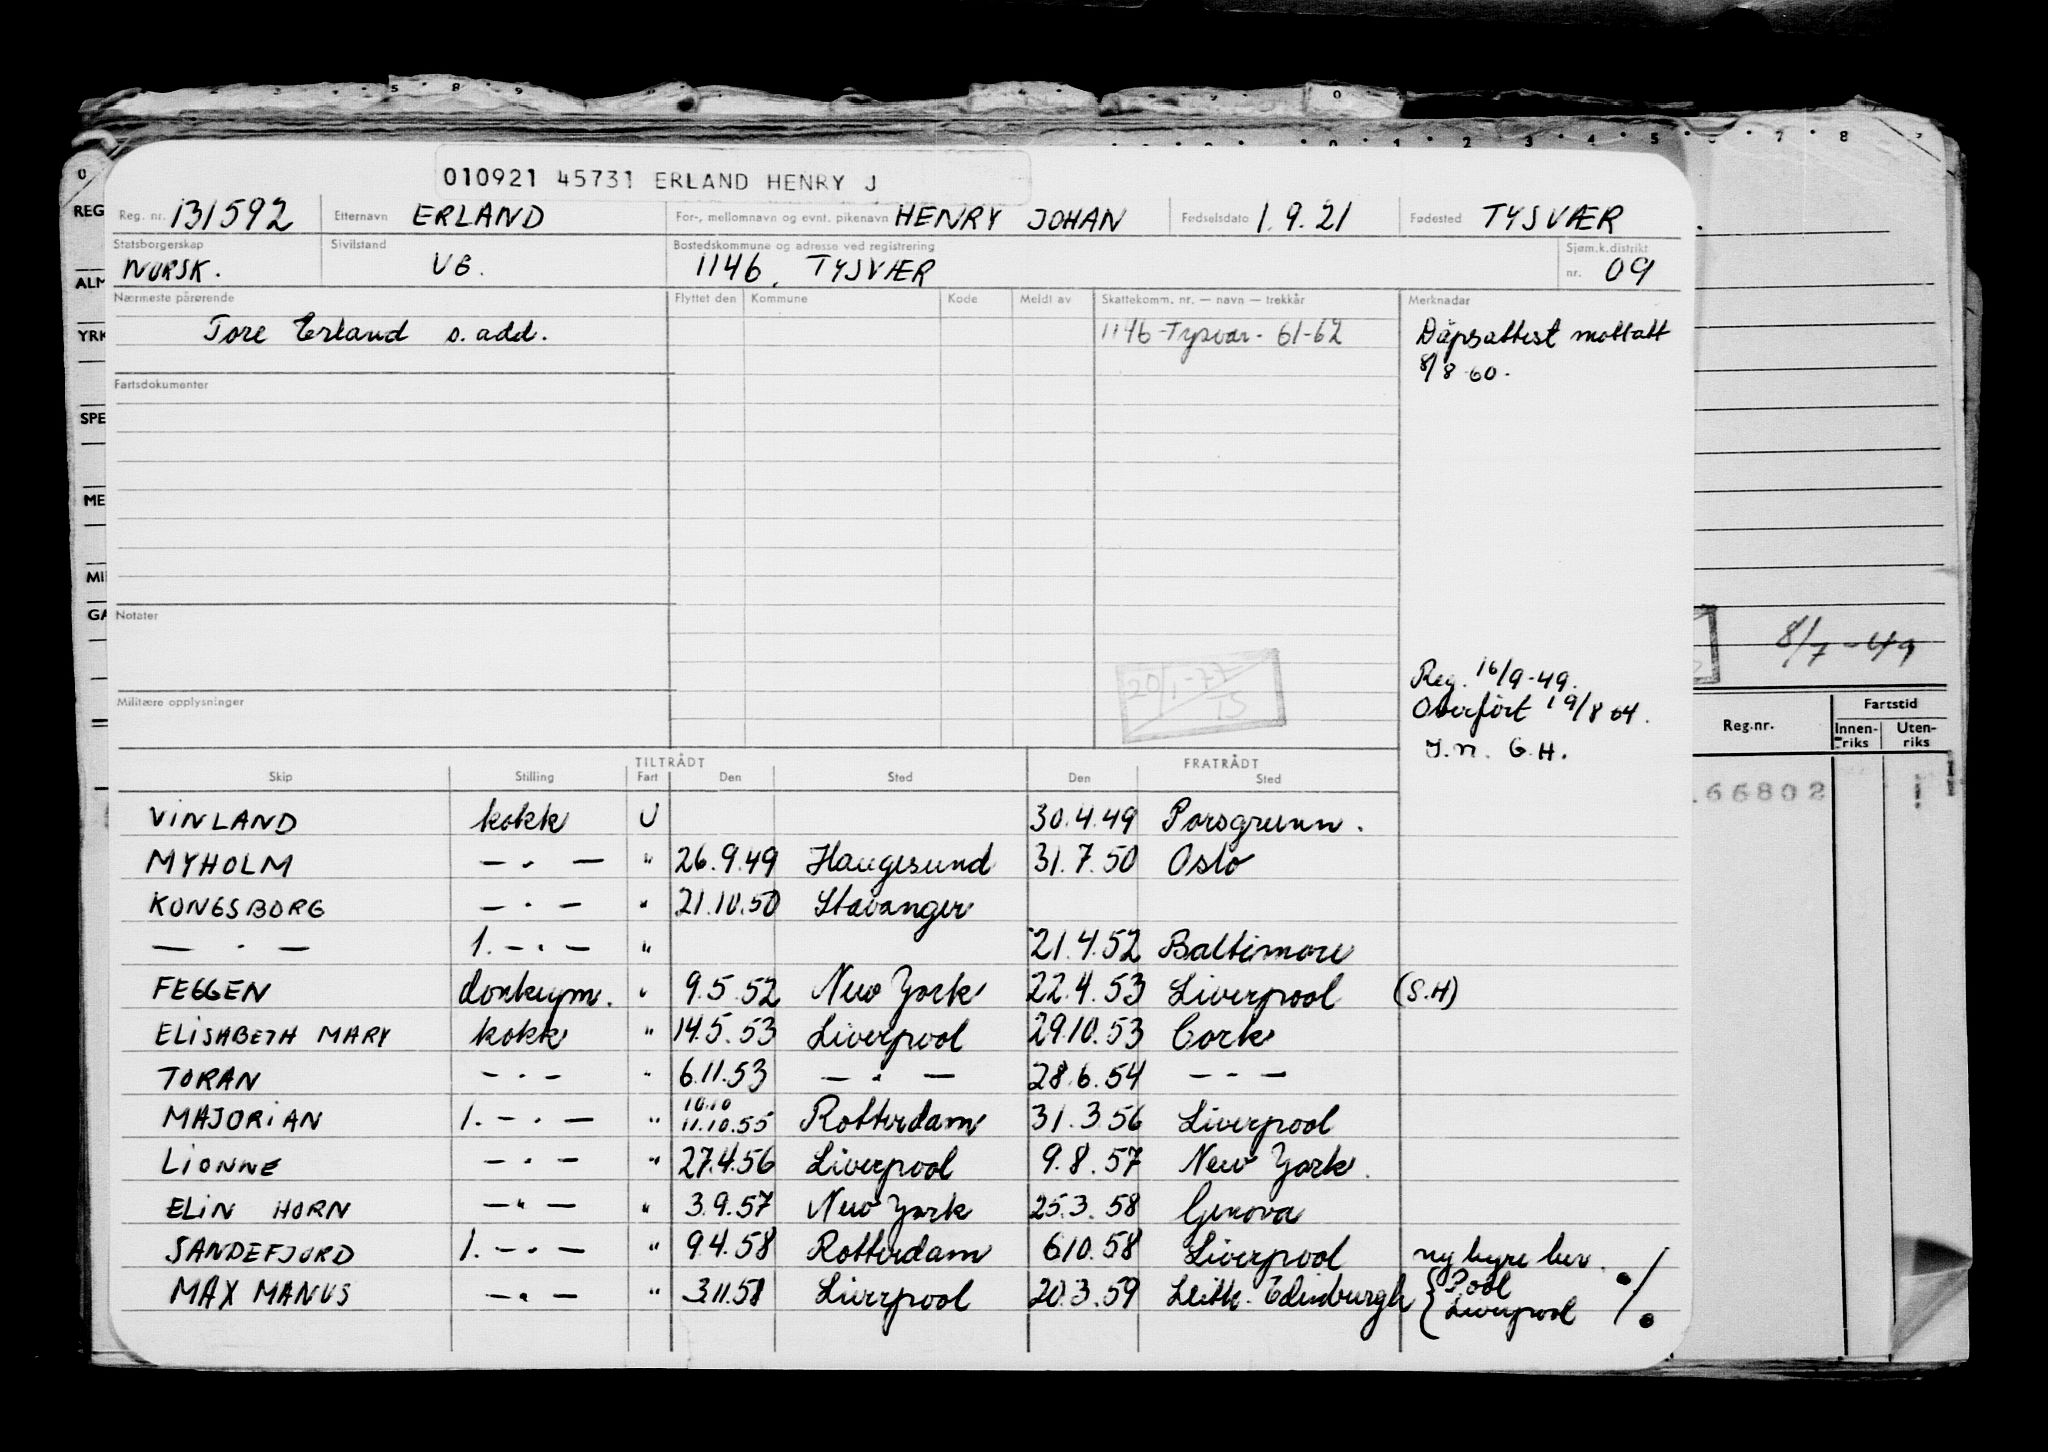 010921 45731 ERLAND HENRY J
Reg. nr. 131592 Etternavn ERLAND For-, mellomnavn og evnt. pikenavn HENRY JOHAN Fødselsdato 1.9.21 Fødested TYSVÆR
Statsborgerskap Sivilstand Bostedskommune og adresse ved registrering Sjøm.k.distrikt
NORSK. UG. 1146, TYSVÆR nr. 09
Nærmeste pårørende Flyttet den Kommune Kode Meldt av Skattekomm. nr. — navn — trekkår Merknadar
Tore Erland s. add. 1146-Tysvær- 61-62 Dåpsattest mottatt
8/8 60.
Fartsdokumenter
Notater
Reg. 16/9-49.
Overført 19/8 64.
J.n. G.H.
20/1-77
Militære opplysninger
8/7-49
Reg.nr. Fartstid
Innen-riks Uten-riks
66802
TILTRÅDT FRATRÅDT
Skip Stilling Fart Den Sted Den Sted
VINLAND kokk U 30.4.49 Porsgrunn.
MYHOLM — . — " 26.9.49 Haugesund 31.7.50 Oslo
KONGSBORG — . — " 21.10.50 Stavanger
— . — 1. — . — " 21.4.52 Baltimore
FEGGEN donkeym. " 9.5.52 New York 22.4.53 Liverpool (S.H)
ELISABETH MARY kokk " 14.5.53 Liverpool 29.10.53 Cork
TORAN — . — " 6.11.53 — . — 28.6.54 — . —
10.10
MAJORIAN 1. — . — " 11.10.55 Rotterdam 31.3.56 Liverpool
LIONNE — . — " 27.4.56 Liverpool 9.8.57 New York.
ELIN HORN — " — " 3.9.57 New York 25.3.58 Genova
SANDEFJORD 1. — . — " 9.4.58 Rotterdam 6.10.58 Liverpool ny hyre bev.
MAX MANUS — . — " 3.11.58 Liverpool 20.3.59 Leith-Edinburgh { Pool
Liverpool ./.